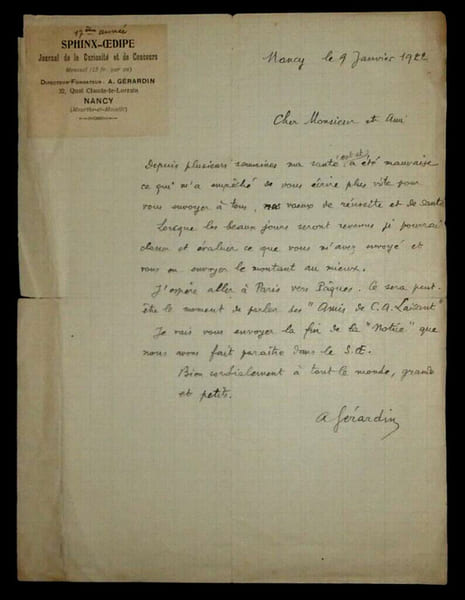 17ème année
SPHINX-ŒDIPE
Journal de la Curiosité et de Concours
Mensuel (15 fr. par an)
DIRECTEUR-FONDATEUR : A. GÉRARDIN
32, Quai Claude-le-Lorrain
NANCY
(Meurthe-et-Moselle)
Nancy le 9 Janvier 1922
Cher Monsieur et Ami
Depuis plusieurs semaines ma santé est et a été mauvaise
ce qui m'a empêché de vous écrire plus vite pour
vous envoyer à tous, nos vœux de réussite et de Santé
Lorsque les beaux jours seront revenus je pourrai
classer et évaluer ce que vous m'avez envoyé et
vous en envoyer le montant au mieux.
J'espère aller à Paris vers Pâques. Ce sera peut-
être le moment de parler des "Amis de C.A. Laisant"
Je vais vous envoyer la fin de la "Notice" que
nous avons fait paraître dans le S.Œ.
Bien cordialement à tout le monde, grands
et petits.
A Gérardin